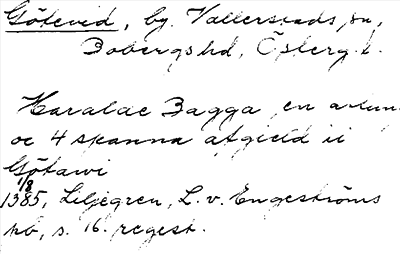 Götevid, by, Vallerstads sn,
Bobergs hd, Östergötl.
Haralde Bagga en
oc 4 spanna afgield ii
Götawi
1/8
1385, Liljegren, L. v. Engeströms
pb, s. 16. regest.